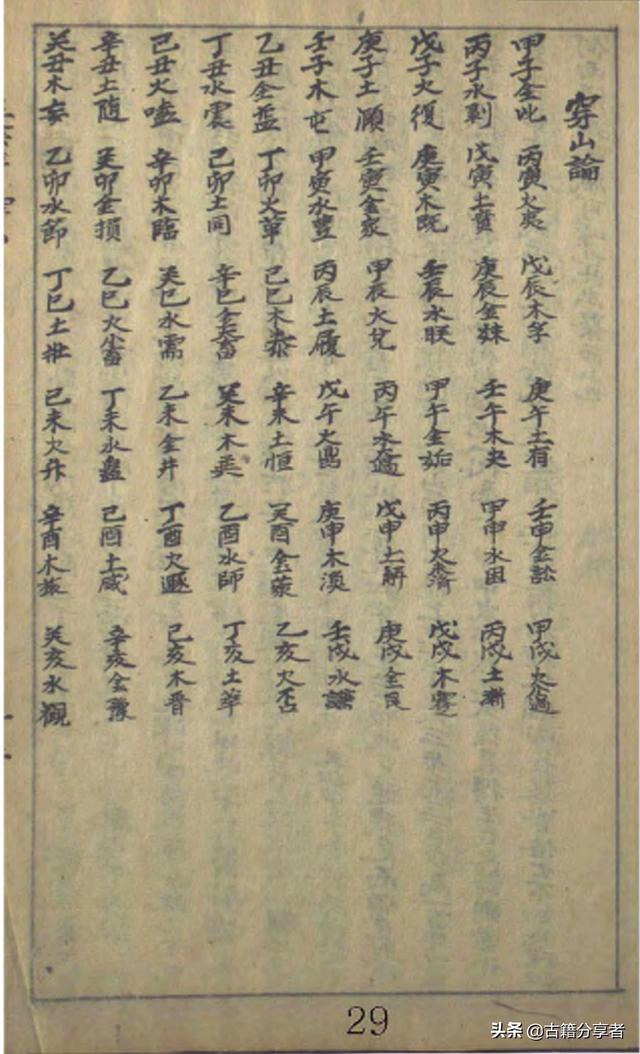 穿山論
甲子金比 丙寅火夷 戊辰木孚 庚午土有 壬申金訟 甲戌火過
丙子水剝 戊寅土賁 庚辰金妹 壬午木夬 甲申水困 丙戌土漸
戊子火復 庚寅木既 壬辰水睽 甲午金姤 丙申火未濟 戊戌木蹇
庚子土頤 壬寅金家 甲辰火兌 丙午水大過 戊申土解 庚戌金艮
壬子木屯 甲寅水豐 丙辰土履 戊午火鼎 庚申木渙 壬戌水謙
乙丑金益 丁卯火革 己巳木泰 辛未土恒 癸酉金蒙 乙亥火否
丁丑水震 己卯土同 辛巳金大畜 癸未木巽 乙酉水師 丁亥土萃
己丑火嗑 辛卯木臨 癸巳水需 乙未金井 丁酉火遯 己亥木晉
辛丑土隨 癸卯金損 乙巳火小畜 丁未水蠱 己酉土咸 辛亥金豫
癸丑木妄 乙卯水節 丁巳土壯 己未火升 辛酉木旅 癸亥水觀
29
头条 @古籍分享者